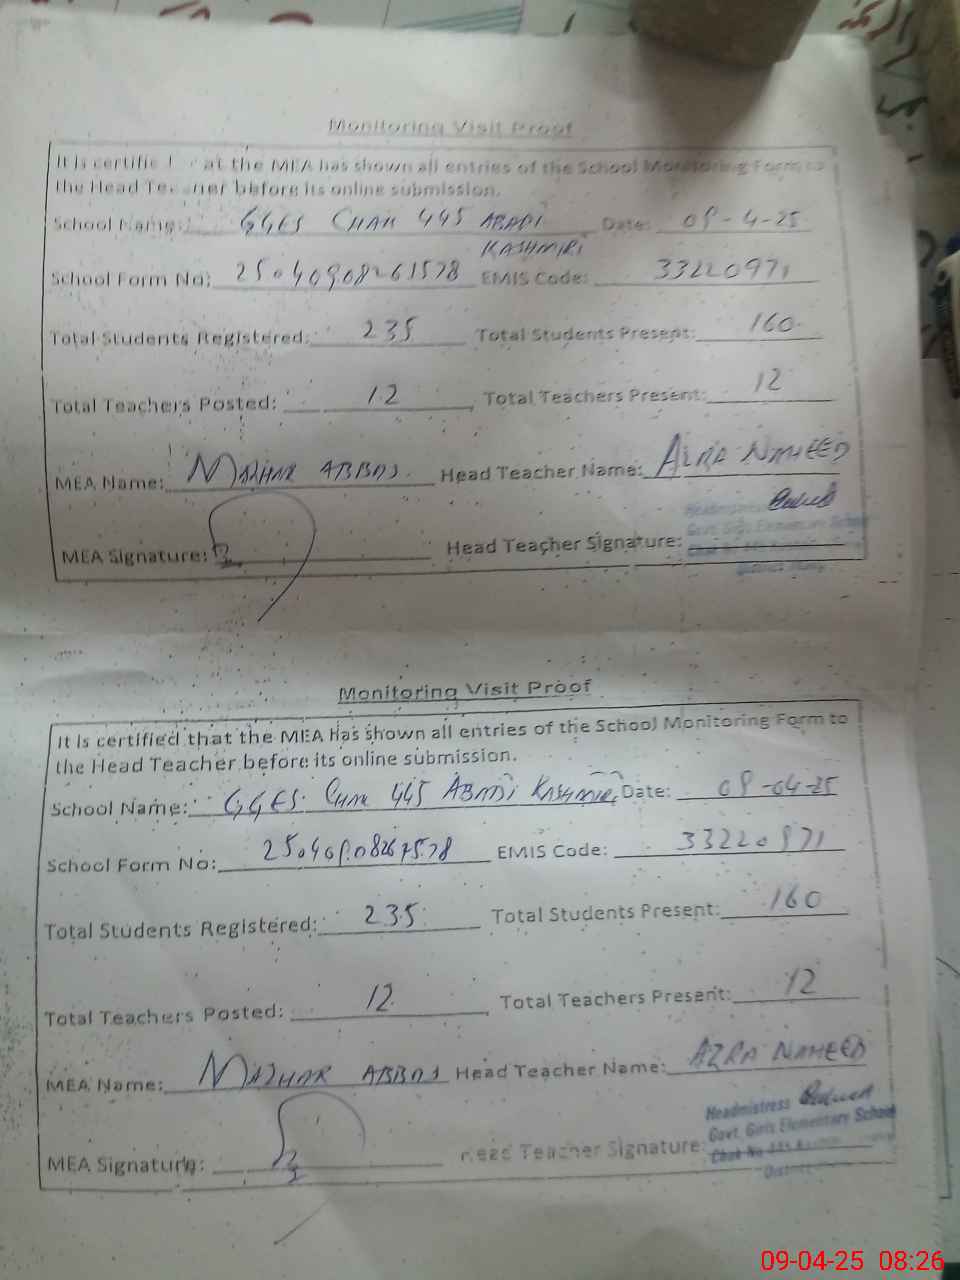 Monitoring Visit Proof
It is certified that the MEA has shown all entries of the School Monitoring Form to
the Head Teacher before its online submission.
School Name: GGES CHAK 445 ABADI Date: 09-4-25
KASHMIRI
School Form No: EMIS Code: 33220971
Total Students Registered: 235 Total Students Present: 160
Total Teachers Posted: 12 Total Teachers Present: 12
MEA Name: MAZHAR ABBAS Head Teacher Name: AZRA NAHEED
Headmistress
Govt. Girls Elementary School
MEA Signature: Head Teacher Signature:
Monitoring Visit Proof
It is certified that the MEA has shown all entries of the School Monitoring Form to
the Head Teacher before its online submission.
School Name: GGES. CHAK 445 ABADI KASHMIRI Date: 09-04-25
School Form No: EMIS Code: 33220971
Total Students Registered: 235 Total Students Present: 160
Total Teachers Posted: 12 Total Teachers Present: 12
MEA Name: MAZHAR ABBAS Head Teacher Name: AZRA NAHEED
Headmistress
Govt. Girls Elementary School
MEA Signature: Head Teacher Signature:
Chak No 445
District
09-04-25 08:26